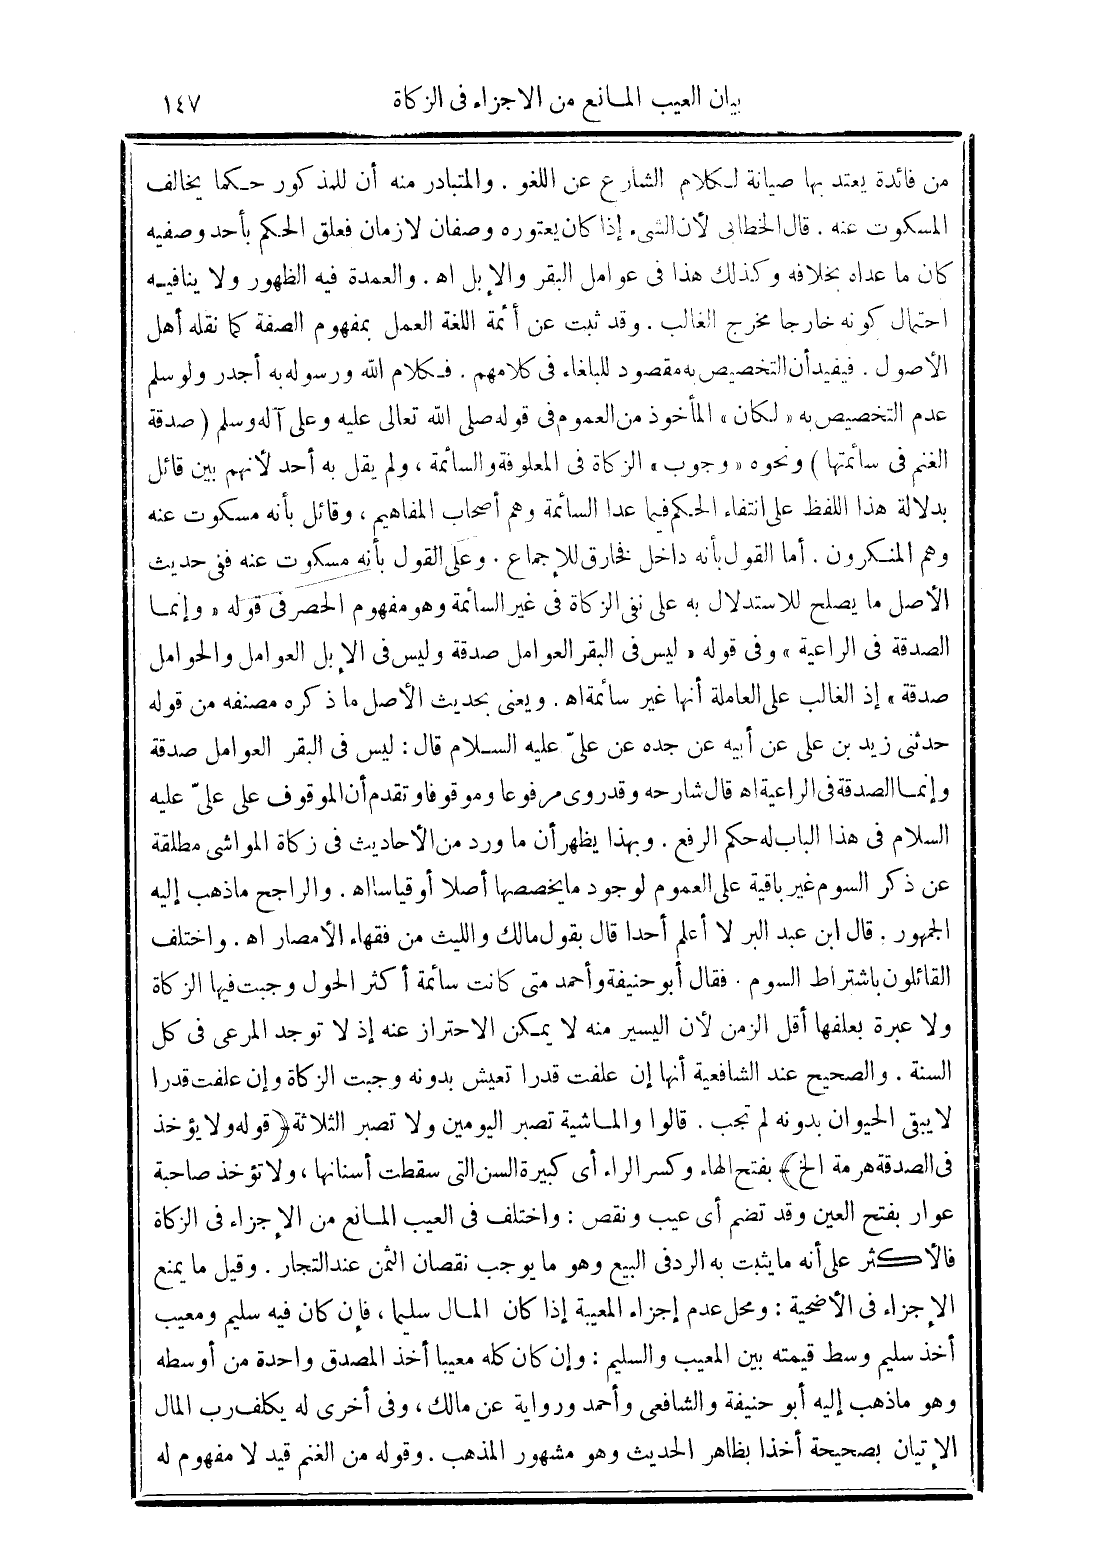 بيان العيب المانع من الاجزاء فى الزكاة ١٤٧
من فائدة يعتد بها صيانة لكلام الشارع عن اللغو . والمتبادر منه أن للمذكور حكما يخالف
المسكوت عنه . قال الخطابى لأن الشىء إذا كان يعتوره وصفان لازمان فعلق الحكم بأحد وصفيه
كان ما عداه بخلافه وكذلك هذا فى عوامل البقر والإبل اه . والعمدة فيه الظهور ولا ينافيه
احتمال كونه خارجا مخرج الغالب . وقد ثبت عن أئمة اللغة العمل بمفهوم الصفة كما نقله أهل
الأصول . فيفيد أن التخصيص به مقصود للبلغاء فى كلامهم . فكلام الله ورسوله به أجدر ولو سلم
عدم التخصيص به « لكان » المأخوذ من العموم فى قوله صلى الله تعالى عليه وعلى آله وسلم ( صدقة
الغنم فى سائمتها ) ونحوه « وجوب » الزكاة فى المعلوفة والسائمة ، ولم يقل به أحد لأنهم بين قائل
بدلالة هذا اللفظ على انتفاء الحكم فيما عدا السائمة وهم أصحاب المفاهيم ، وقائل بأنه مسكوت عنه
وهم المنكرون . أما القول بأنه داخل فخارق للإجماع . وعلى القول بأنه مسكوت عنه ففى حديث
الأصل ما يصلح للاستدلال به على نفى الزكاة فى غير السائمة وهو مفهوم الحصر فى قوله « وإنما
الصدقة فى الراعية » وفى قوله « ليس فى البقر العوامل صدقة وليس فى الإبل العوامل والحوامل
صدقة » إذ الغالب على العاملة أنها غير سائمة اه . ويعنى بحديث الأصل ما ذكره مصنفه من قوله
حدثنى زيد بن على عن أبيه عن جده عن علىّ عليه السلام قال : ليس فى البقر العوامل صدقة
وإنما الصدقة فى الراعية اه قال شارحه وقد روى مرفوعا وموقوفا وتقدم أن الموقوف على علىّ عليه
السلام فى هذا الباب له حكم الرفع . وبهذا يظهر أن ما ورد من الأحاديث فى زكاة المواشى مطلقة
عن ذكر السوم غير باقية على العموم لوجود ما يخصصها أصلا أو قياسا اه . والراجح ما ذهب إليه
الجمهور . قال ابن عبد البر لا أعلم أحدا قال بقول مالك والليث من فقهاء الأمصار اه . واختلف
القائلون باشتراط السوم . فقال أبو حنيفة وأحمد متى كانت سائمة أكثر الحول وجبت فيها الزكاة
ولا عبرة بعلفها أقل الزمن لأن اليسير منه لا يمكن الاحتراز عنه إذ لا توجد المرعى فى كل
السنة . والصحيح عند الشافعية أنها إن علفت قدرا تعيش بدونه وجبت الزكاة وإن علفت قدرا
لا يبقى الحيوان بدونه لم تجب . قالوا والماشية تصبر اليومين ولا تصبر الثلاثة ﴿ قوله ولا يؤخذ
فى الصدقة هرمة الخ ﴾ بفتح الهاء وكسر الراء أى كبيرة السن التى سقطت أسنانها ، ولا تؤخذ صاحبة
عوار بفتح العين وقد تضم أى عيب ونقص : واختلف فى العيب المانع من الإجزاء فى الزكاة
فالأكثر على أنه ما يثبت به الرد فى البيع وهو ما يوجب نقصان الثمن عند التجار . وقيل ما يمنع
الإجزاء فى الأضحية : ومحل عدم إجزاء المعيبة إذا كان المال سليما ، فإن كان فيه سليم ومعيب
أخذ سليم وسط قيمته بين المعيب والسليم : وإن كان كله معيبا أخذ المصدق واحدة من أوسطه
وهو ما ذهب إليه أبو حنيفة والشافعى وأحمد ورواية عن مالك ، وفى أخرى له يكلف رب المال
الإتيان بصحيحة أخذا بظاهر الحديث وهو مشهور المذهب . وقوله من الغنم قيد لا مفهوم له